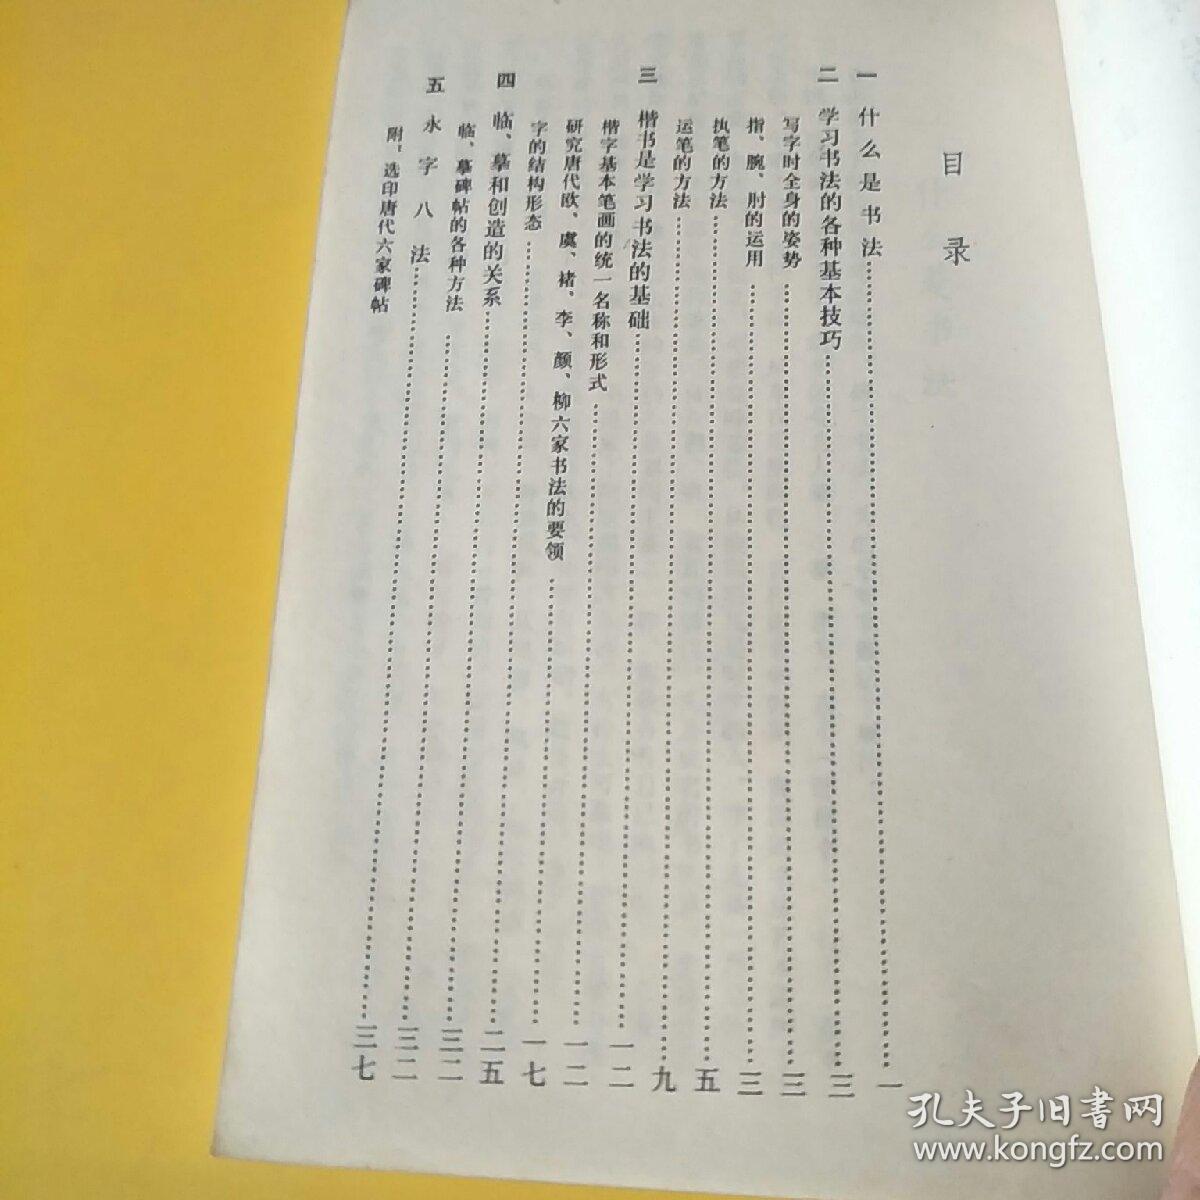 目录
一 什么是书法……一
二 学习书法的各种基本技巧……三
写字时全身的姿势……三
指、腕、肘的运用……三
执笔的方法……五
运笔的方法……九
三 楷书是学习书法的基础……一二
楷字基本笔画的统一名称和形式……一二
研究唐代欧、虞、褚、李、颜、柳六家书法的要领……一七
字的结构形态……二五
四 临、摹和创造的关系……三二
临、摹碑帖的各种方法……三二
五 永字八法……三七
附:选印唐代六家碑帖
孔夫子旧书网
www.kongfz.com